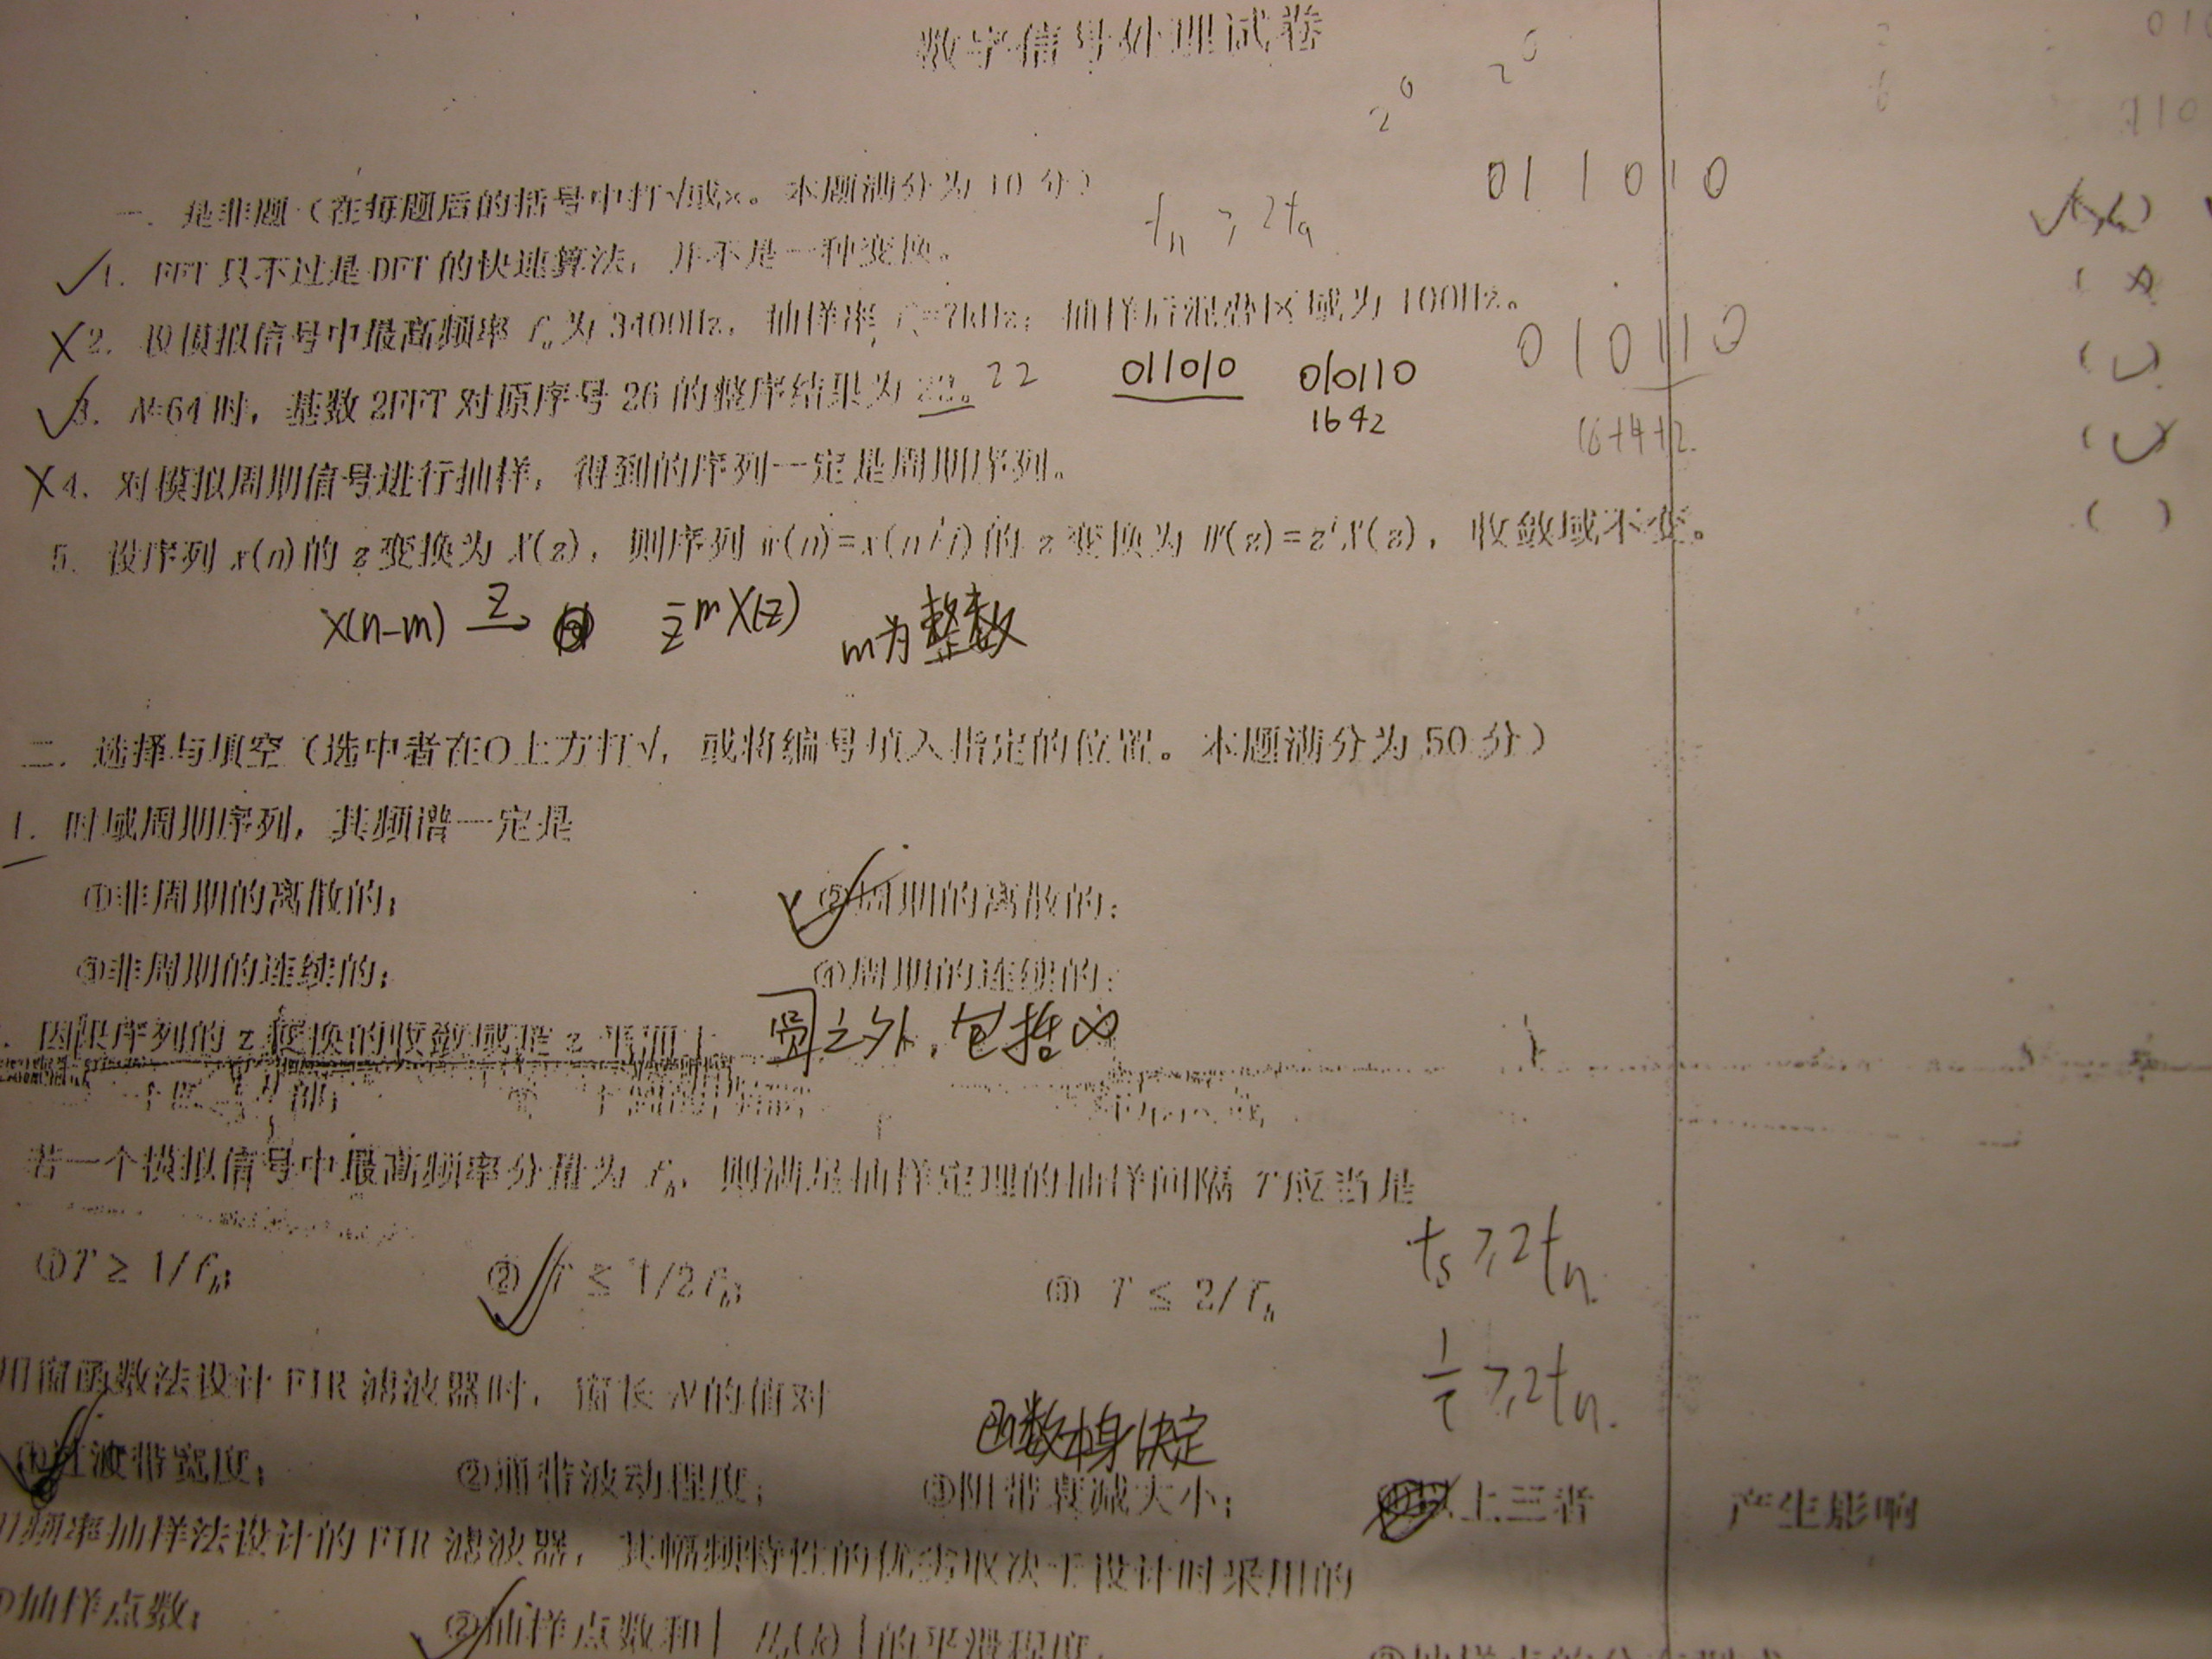 数字信号处理试卷
2⁰ 2⁰
一. 是非题（在每题后的括号中打√或×。本题满分为 10 分）
011010
✓1. FFT 只不过是 DFT 的快速算法，并不是一种变换。
X2. 设模拟信号中最高频率 fₙ为 3400Hz，抽样率 =7kHz，抽样后混叠区域为 100Hz。 ( X
010110
✓3. N=64 时，基数 2FFT 对原序号 26 的整序结果为 22。 22 011010 010110 ( ✓ )
1642
16+4+2
X4. 对模拟周期信号进行抽样，得到的序列一定是周期序列。
5. 设序列 x(n)的 z 变换为 X(z)，则序列 w(n)=x(n+i)的 z 变换为 W(z)=zⁱX(z)，收敛域不变。 ( )
X(n-m) Z→ z⁻ᵐX(z) m为整数
二. 选择与填空（选中者在O上方打√，或将编号填入指定的位置。本题满分为 50 分）
1. 时域周期序列，其频谱一定是
①非周期的离散的；
✓周期的离散的；
③非周期的连续的；
④周期的连续的；
序列的 z 变换的收敛域是 z 平面上 圆之外，包括∞
若一个模拟信号中最高频率分量为 fₕ，则满足抽样定理的抽样间隔 T应当是
fs≥2fn
①T ≥ 1/fₕ； ②✓T ≤ 1/2fₕ； ③ T ≤ 2/fₕ
1/T ≥2fn.
用窗函数法设计 FIR 滤波器时，窗长 N的值对
函数本身决定
过渡带宽度； ②通带波动程度； ③阻带衰减大小； 以上三者 产生影响
频率抽样法设计的 FIR 滤波器，其幅频特性的优劣取决于设计时采用的
①抽样点数； ②✓抽样点数和 | (k) |的平滑程度